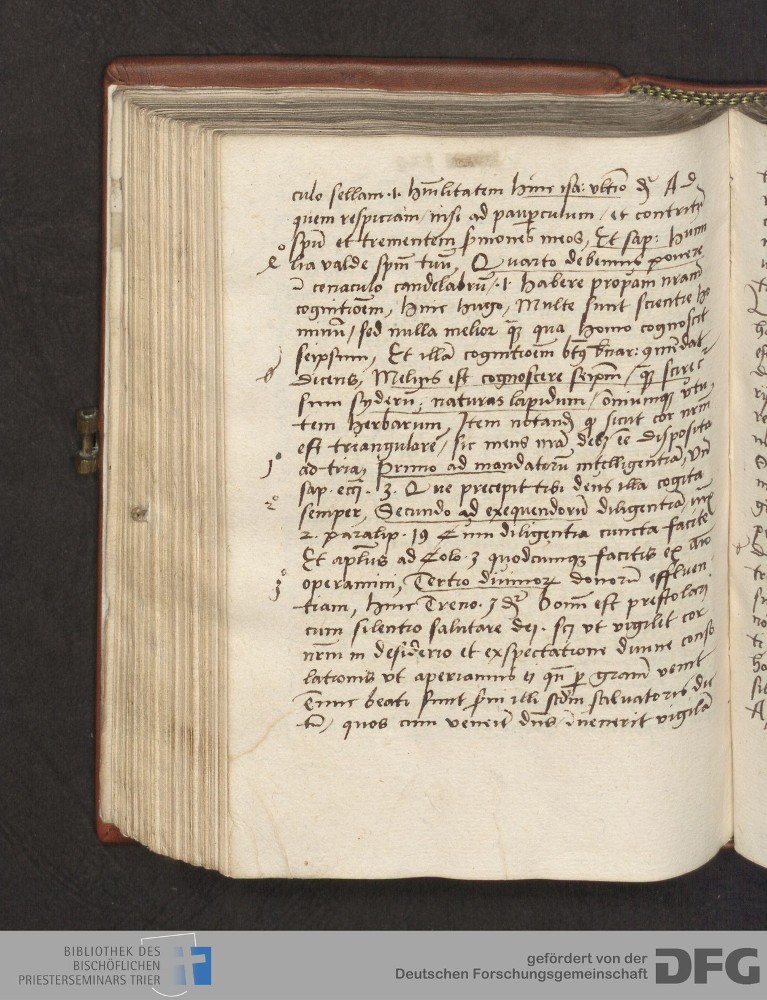 culo sellam .i. humilitatem hinc isa: vltio dr Ad
quem respiciam / nisi ad paupculum / et contritu
spu et trementem smones meos, Et sap: Humi
lia valde spm tuu, Quarto debemus ponere
i cenaculo candelabru, .i. habere propam nram
cognitioem, hinc hugo, Multe sunt scientie ho
minu / sed nulla melior qua homo cognoscit
seipsum, Et illa cognitioem btus bnar:
dicens, Melius est cognoscere seipm / q scire
sum syderu, naturas lapidum / omniumq vtu
tem herbarum, Item notand q sicut cor nrm
est triangulare / sic mens nra debz ee disposita
1º ad tria, Primo ad mandatoru intelligentia, Vn
sap. ecci. 3. Que precepit tibi deus illa cogita
2º semper, Secundo ad exequendoru diligentia
2. paralip. 19 Cum diligentia cuncta facite
Et aplus ad Colo. 3 quodcumq facitis ex aio
3º operamini, Tertio diuinor donoru effluen
tiam, hinc Treno. 3 dr Bonu est prestolari
cum silentio salutare dei. scz vt vigilet cor
nrm in desiderio et exspectatione diuine conso
lationis vt aperiamus ei qn p gram venit
Tunc beati sunt illi scdm saluatoris dic
tu, quos cum venerit dns / inuenerit vigila
BIBLIOTHEK DES
BISCHÖFLICHEN
PRIESTERSEMINARS TRIER
gefördert von der
Deutschen Forschungsgemeinschaft DFG